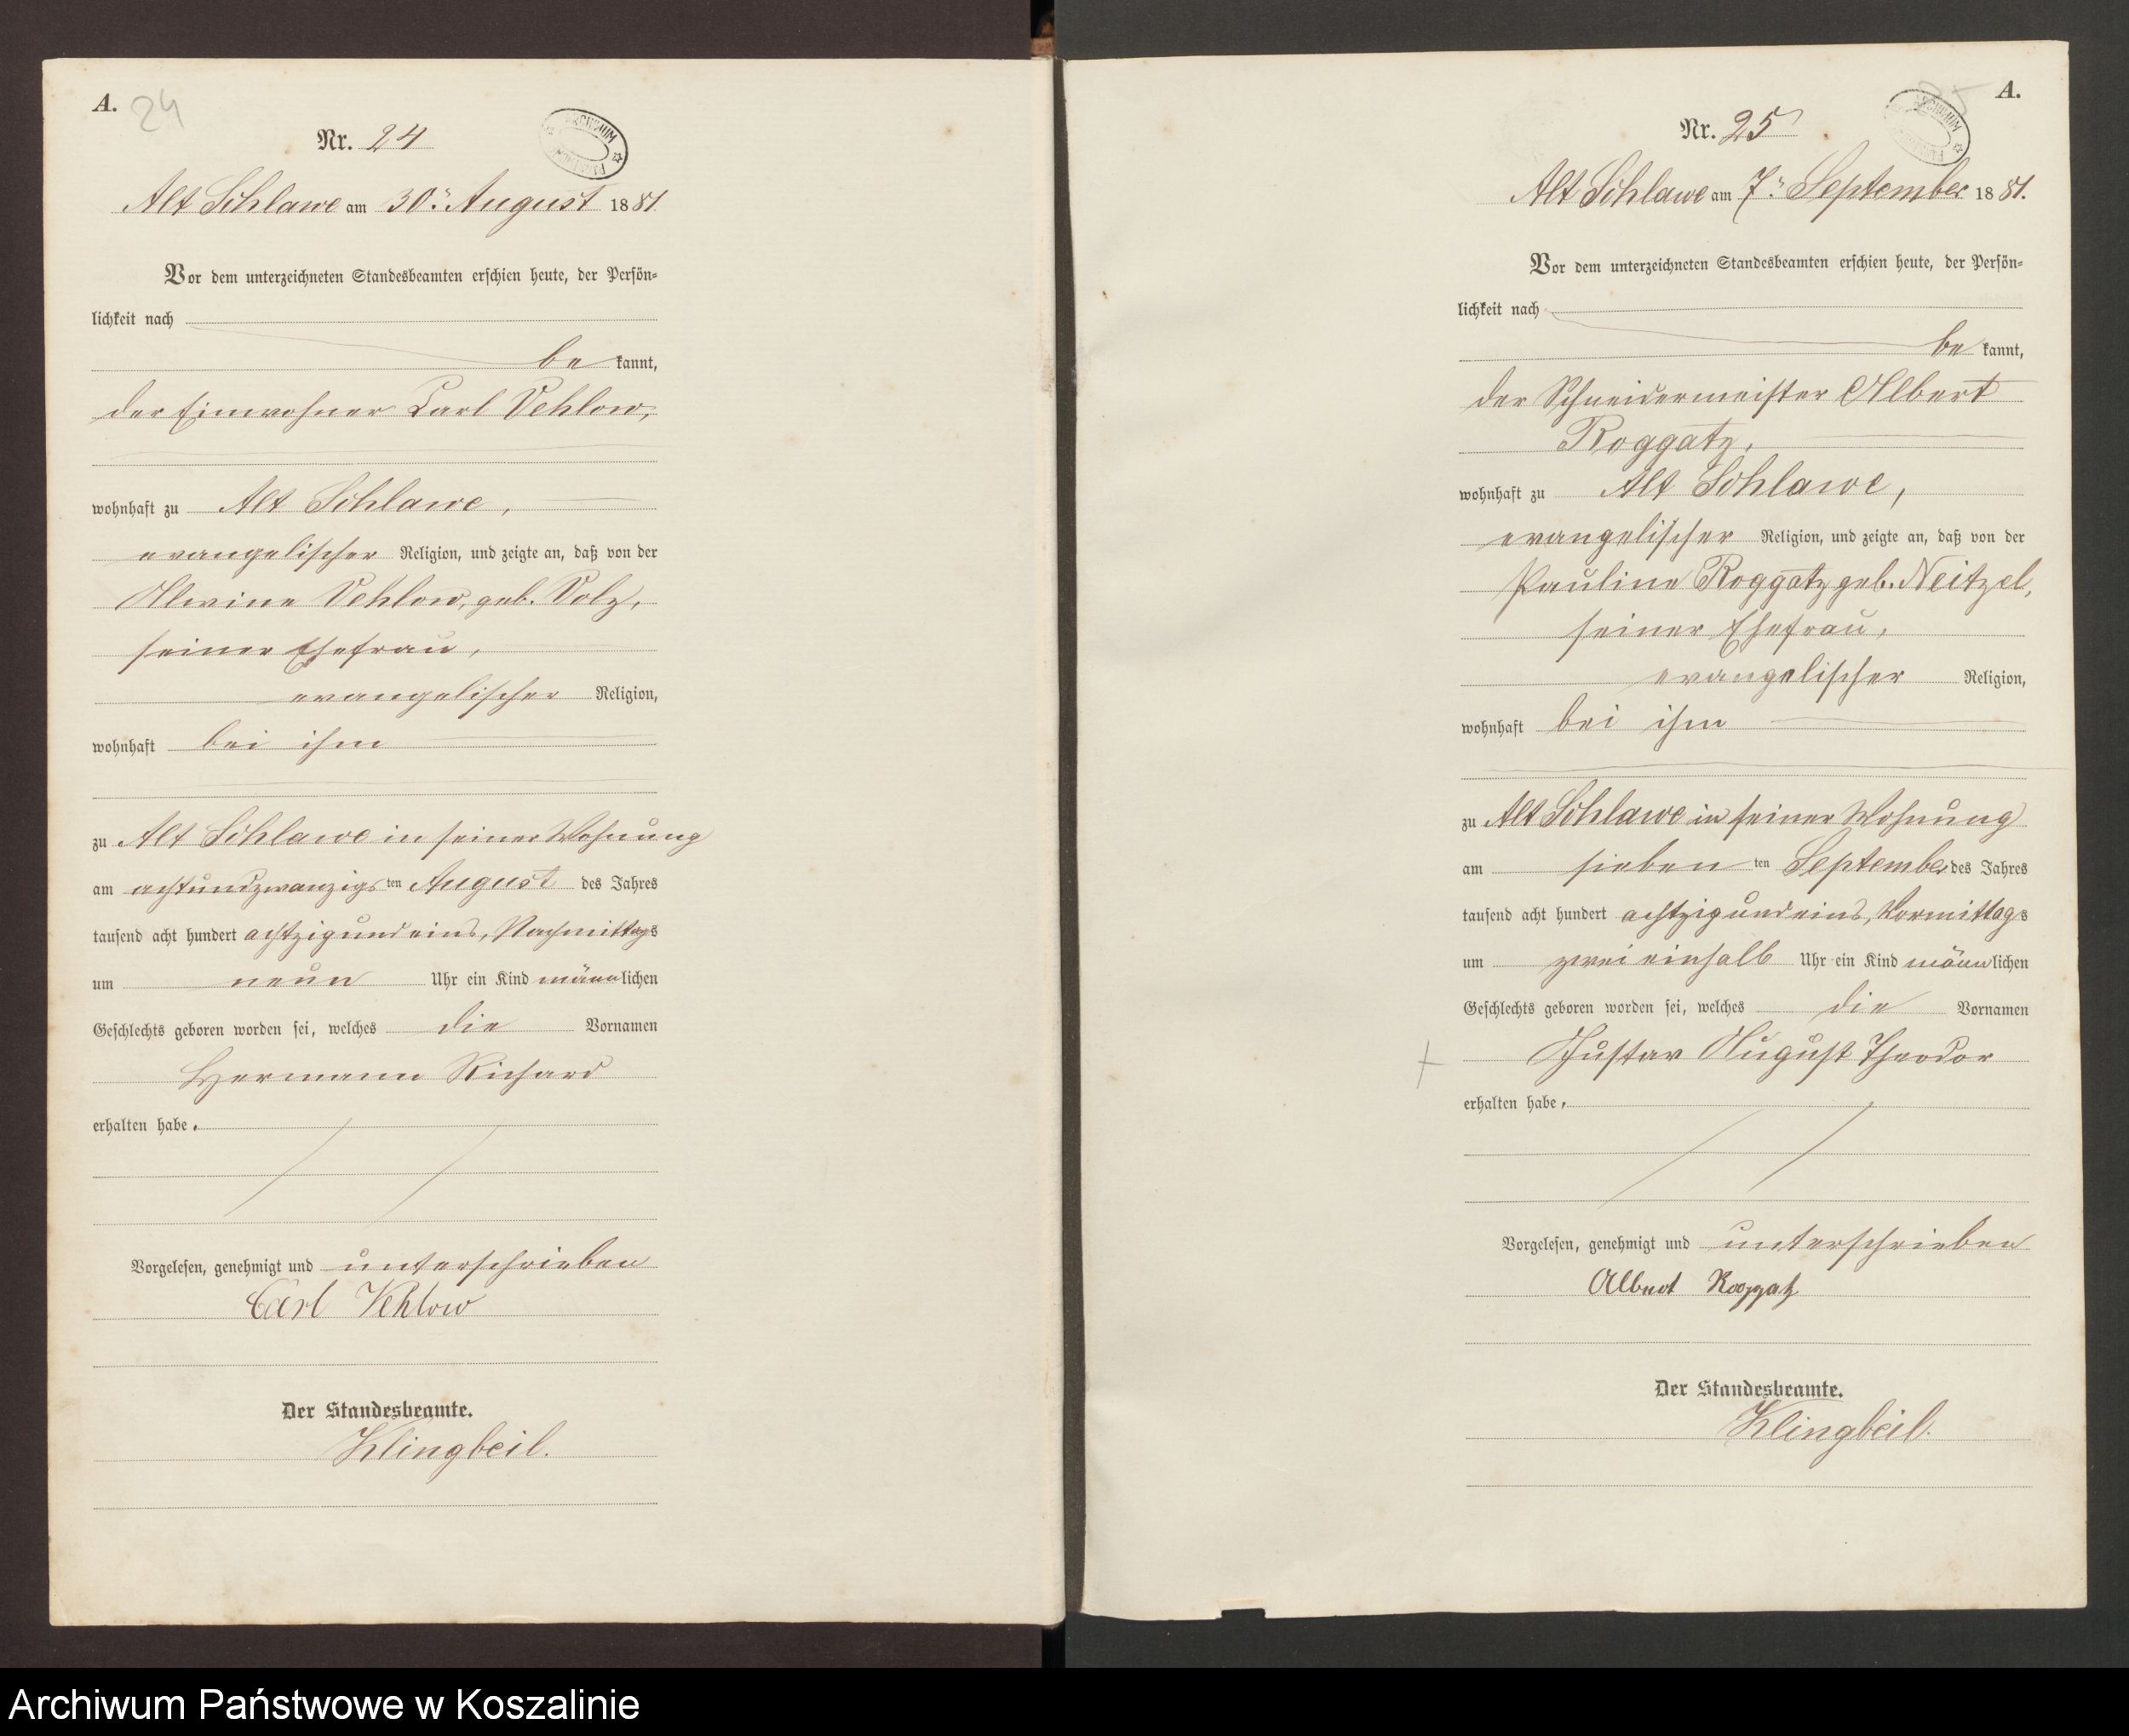 A. 24
Nr. 24
Alt Schlawe am 30. August 1881
Vor dem unterzeichneten Standesbeamten erschien heute, der Persön-
lichkeit nach
be kannt,
der Einwohner Carl Vehlow,
wohnhaft zu Alt Schlawe,
evangelischer Religion, und zeigte an, daß von der
Alwine Vehlow, geb. Volz,
seiner Ehefrau,
evangelischer Religion,
wohnhaft bei ihm
zu Alt Schlawe in seiner Wohnung
am achtundzwanzigs ten August des Jahres
tausend acht hundert achtzig und eins, Nachmittags
um neun Uhr ein Kind männlichen
Geschlechts geboren worden sei, welches die Vornamen
Hermann Richard
erhalten habe.
Vorgelesen, genehmigt und unterschrieben
Carl Vehlow
Der Standesbeamte.
Klingbeil.
25 A.
Nr. 25
ARCHIWUM
Alt Schlawe am 7. September 1881.
Vor dem unterzeichneten Standesbeamten erschien heute, der Persön-
lichkeit nach
be kannt,
der Schneidermeister Albert
Roggatz,
wohnhaft zu Alt Schlawe,
evangelischer Religion, und zeigte an, daß von der
Pauline Roggatz geb. Neitzel,
seiner Ehefrau,
evangelischer Religion,
wohnhaft bei ihm
zu Alt Schlawe in seiner Wohnung
am sieben ten September des Jahres
tausend acht hundert achtzig und eins, Vormittags
um zwei einhalb Uhr ein Kind männlichen
Geschlechts geboren worden sei, welches die Vornamen
Gustav August Theodor
erhalten habe.
Vorgelesen, genehmigt und unterschrieben
Albert Roggatz
Der Standesbeamte.
Klingbeil.
Archiwum Państwowe w Koszalinie